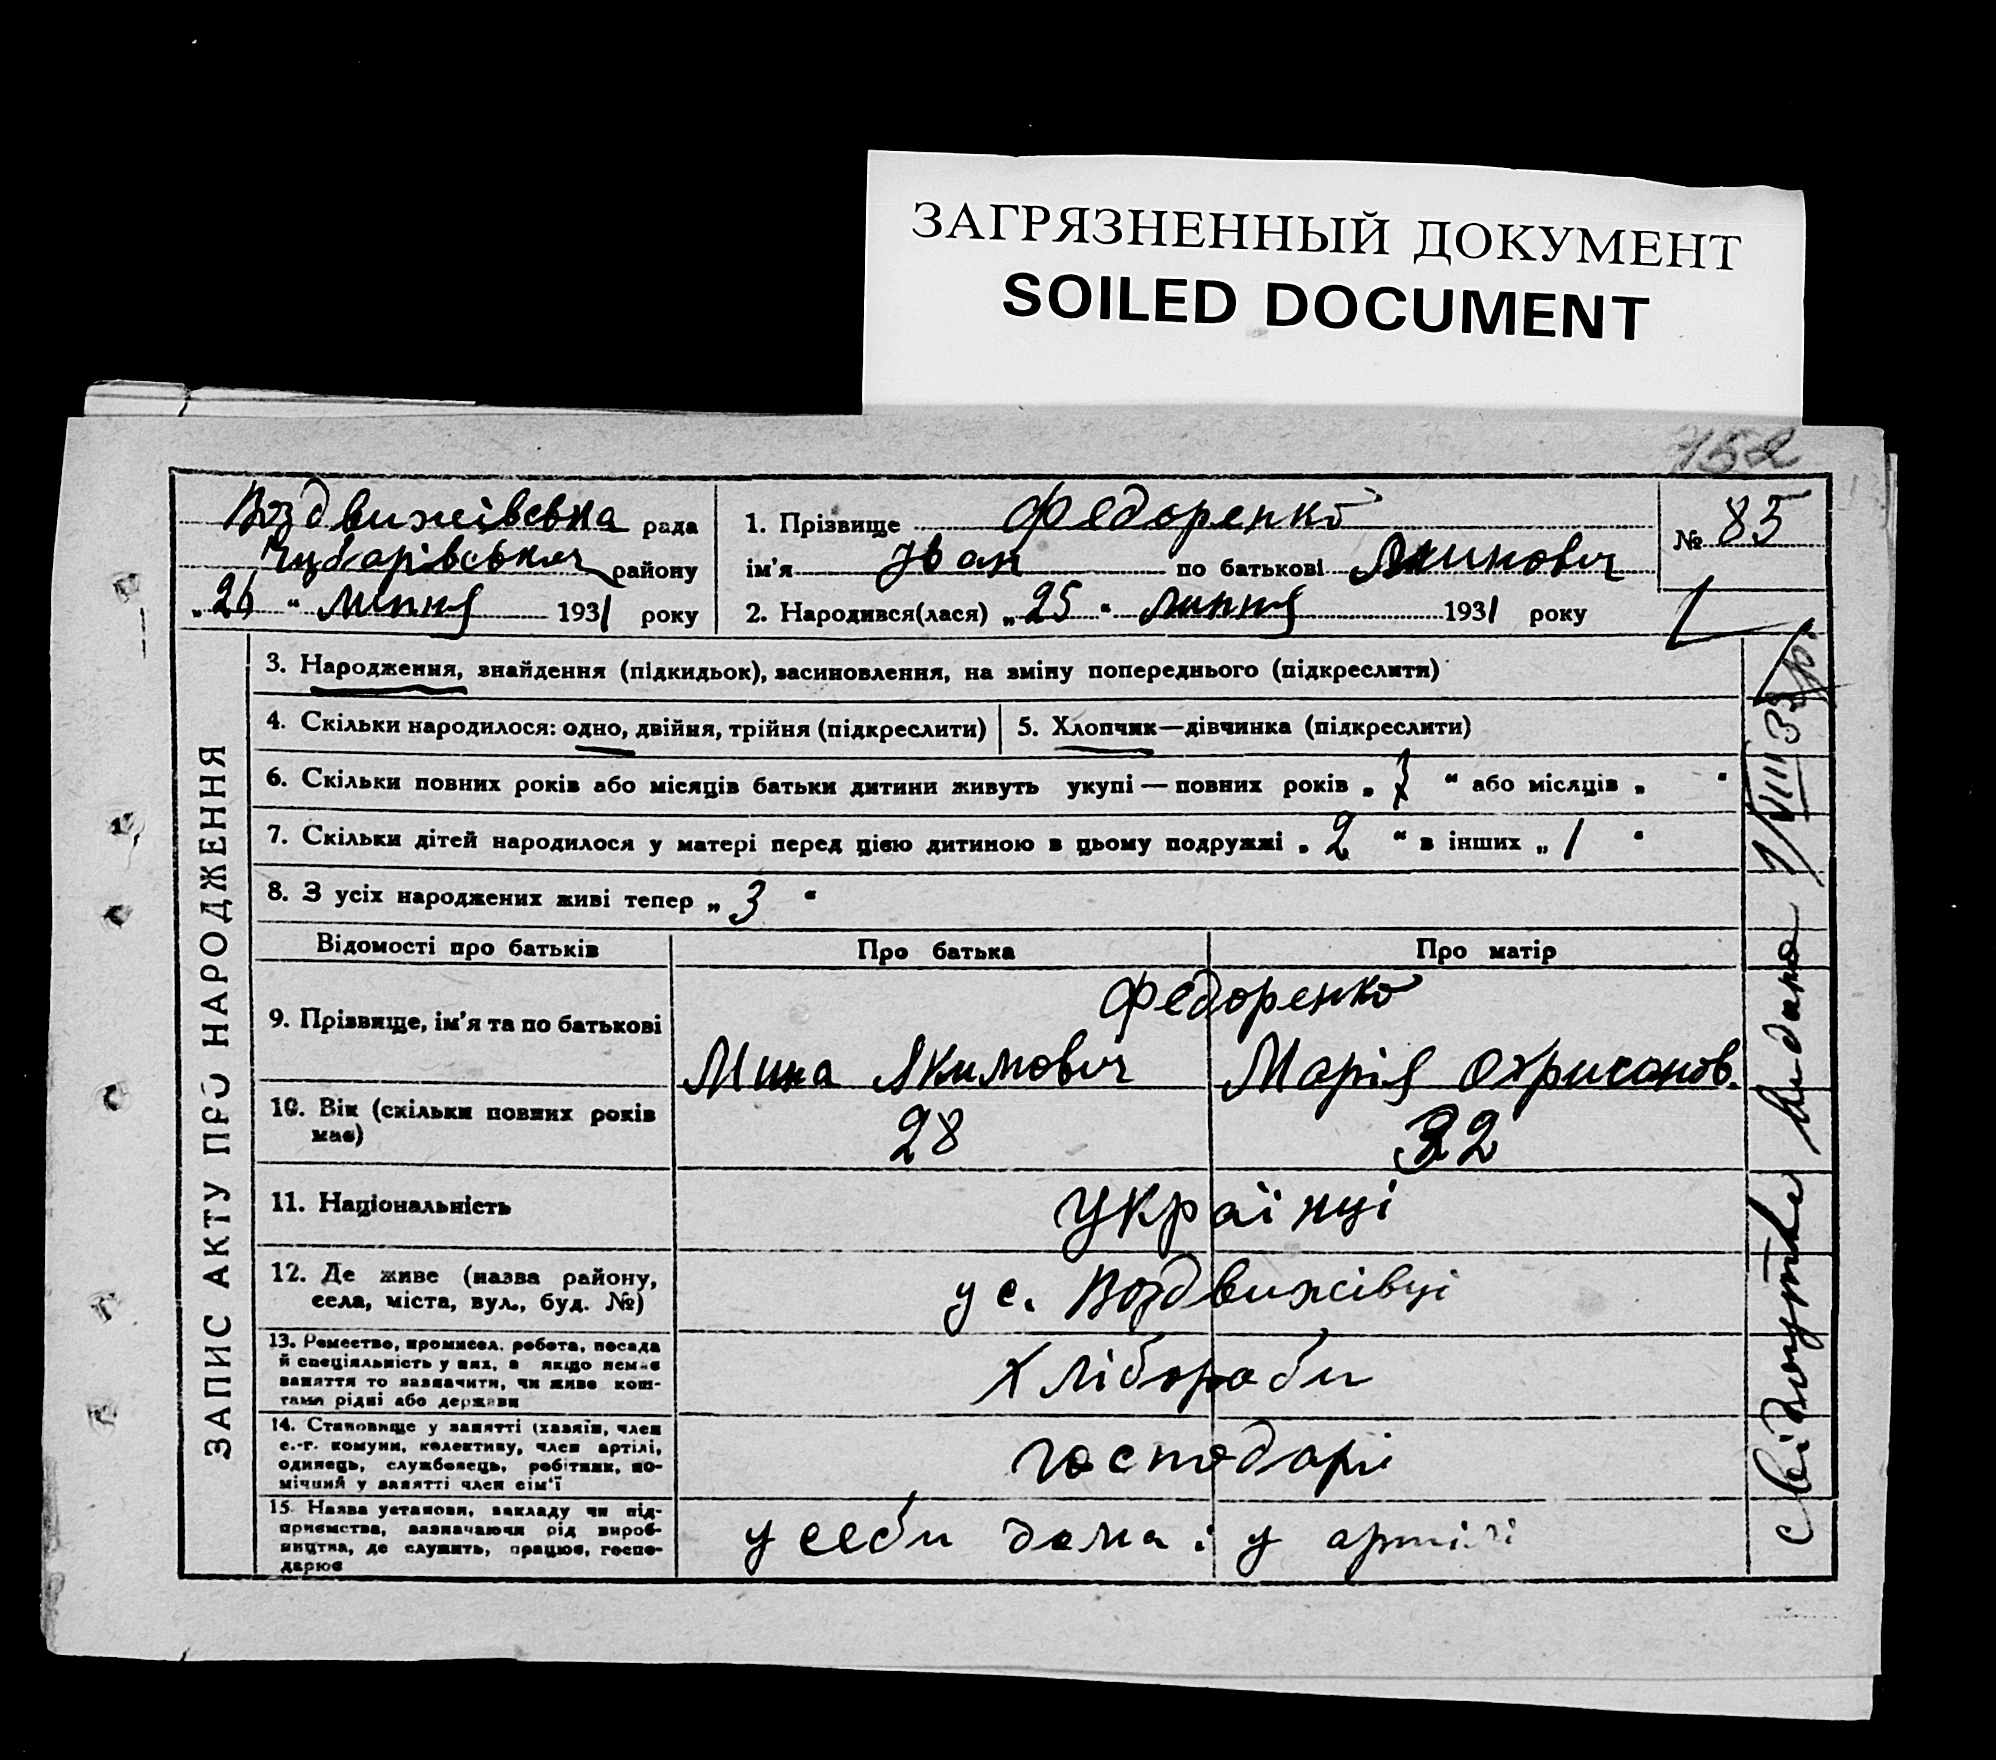 ЗАГРЯЗНЕННЫЙ ДОКУМЕНТ
SOILED DOCUMENT
152
Воздвижівська рада
Чубарівського району
„26“ липня 1931 року
1. Прізвище Федоренко
ім'я Іван по батькові
2. Народився(лася) „25“ липня 1931 року
№ 85
ЗАПИС АКТУ ПРО НАРОДЖЕННЯ
3. Народження, знайдення (підкидьок), засиновлення, на зміну попереднього (підкреслити)
4. Скільки народилося: одно, двійня, трійня (підкреслити)
5. Хлопчик—дівчинка (підкреслити)
6. Скільки повних років або місяців батьки дитини живуть укупі — повних років „ 7 “ або місяців „ "
7. Скільки дітей народилося у матері перед цією дитиною в цьому подружжі „ 2 “ в інших „ 1 "
8. З усіх народжених живі тепер „ 3 “
Відомості про батьків
Про батька
Про матір
9. Прізвище, ім'я та по батькові
Федоренко
Мина Якимович
Марія Охрисанов.
10. Вік (скільки повних років
має)
28
32
11. Національність
Українці
12. Де живе (назва району,
села, міста, вул., буд. №)
у с. Воздвижівці
13. Ремество, промисел, робота, посада
й спеціяльність у них, а якщо немає
заняття то зазначити, чи живе кош-
тами рідні або держави
Хлібороби
14. Становище у занятті (хазяїн, член
с.-г. комуни, колективу, член артілі,
одинець, службовець, робітник, по-
мічний у занятті член сім'ї
господарі
15. Назва установи, закладу чи під-
приємства, зазначаючи рід вироб-
ництва, де служить, працює, госпо-
дарює
у себи дома і у артілі
Свідоцтво видано 1/VIII 31 р.